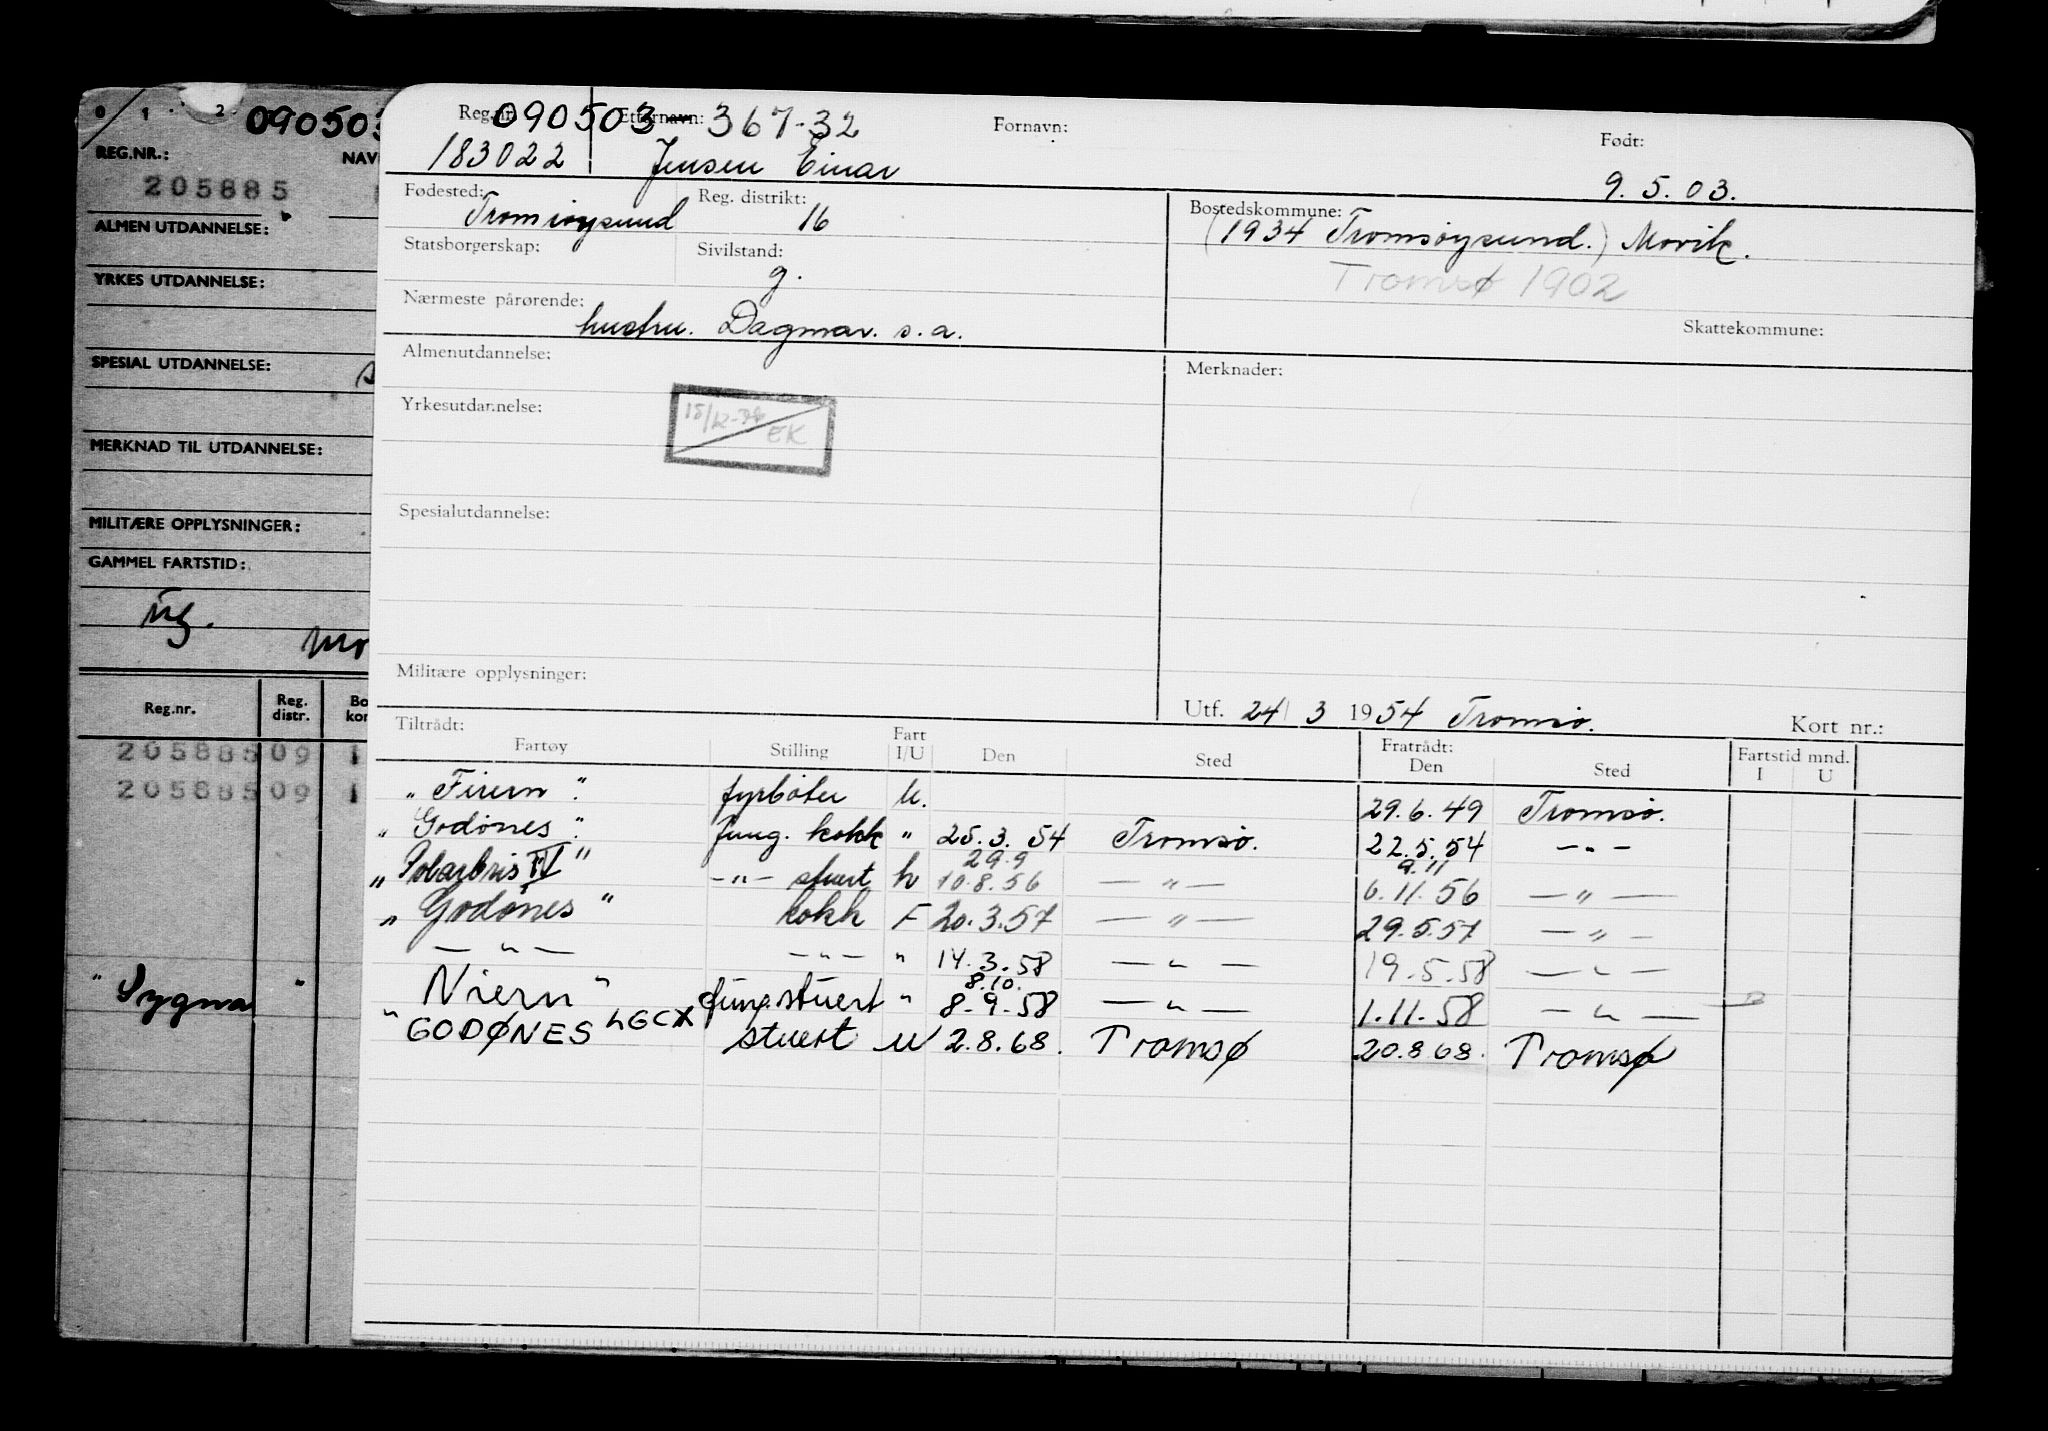 0 1 2
090503
REG.NR.: NAV
205885
ALMEN UTDANNELSE:
YRKES UTDANNELSE:
SPESIAL UTDANNELSE:
MERKNAD TIL UTDANNELSE:
MILITÆRE OPPLYSNINGER:
GAMMEL FARTSTID:
Reg.nr. Reg. distr. Bo kon
205885 09 1
205885 09 1
" Sygna "
Reg.nr. 090503 Etternavn: 367-32 Fornavn: Født:
183022 Jensen Einar 9.5.03.
Fødested: Reg. distrikt: Bostedskommune:
Tromsøysund 16 (1934 Tromsøysund.) Movik.
Statsborgerskap: Sivilstand:
g. Tromsø 1902
Nærmeste pårørende:
hustru. Dagmar. s.a. Skattekommune:
Almenutdannelse: Merknader:
Yrkesutdannelse: 15/12-76 EK
Spesialutdannelse:
Militære opplysninger:
Utf. 24/3 1954 Tromsø. Kort nr.:
Tiltrådt: Fratrådt:
Fartøy Stilling Fart I/U Den Sted Den Sted Fartstid mnd. I U
fyrbøter U. 29.6.49 Tromsø.
" Godønes " fung. kokk " 25.3.54 Tromsø. 22.5.54 —"—
29.9 9.11
" Polarbris IV " —"— stuert U 10.8.56 —"— 6.11.56 —"—
" Godønes " kokk F 20.3.57 —"— 29.5.57 —"—
—"— —"— " 14.3.58 —"— 19.5.58 —"—
8.10.
Niern " fung stuert " 8.9.58 —"— 1.11.58 —"—
" GODØNES LGCX stuert U 2.8.68. Tromsø 20.8.68. Tromsø